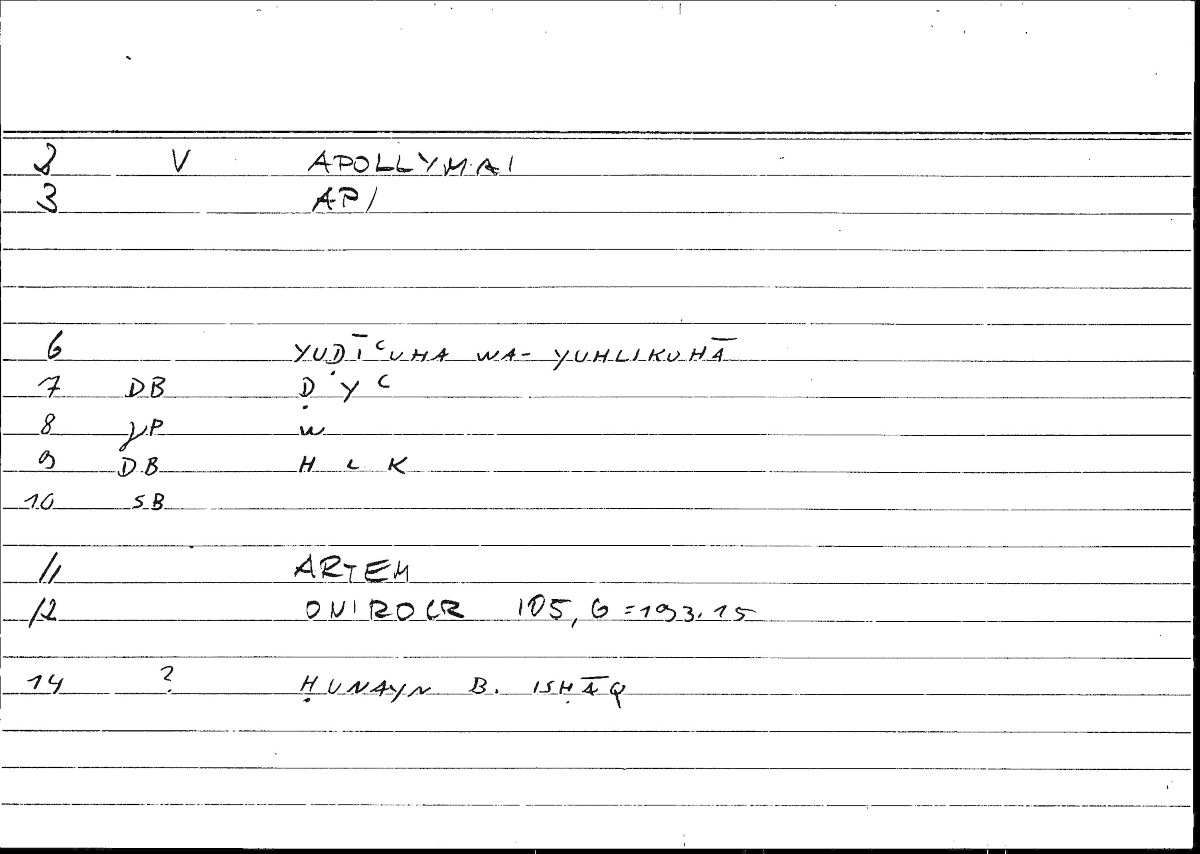 2 V APOLLYMAI
3 API
6 YUḌĪʿUHA WA- YUHLIKUHĀ
7 DB Ḍ Y ʿ
8 P W
9 DB H L K
10 SB
11 ARTEM
12 ONIROCR 105, 6 = 193.15
14 ? ḤUNAYN B. ISḤĀQ